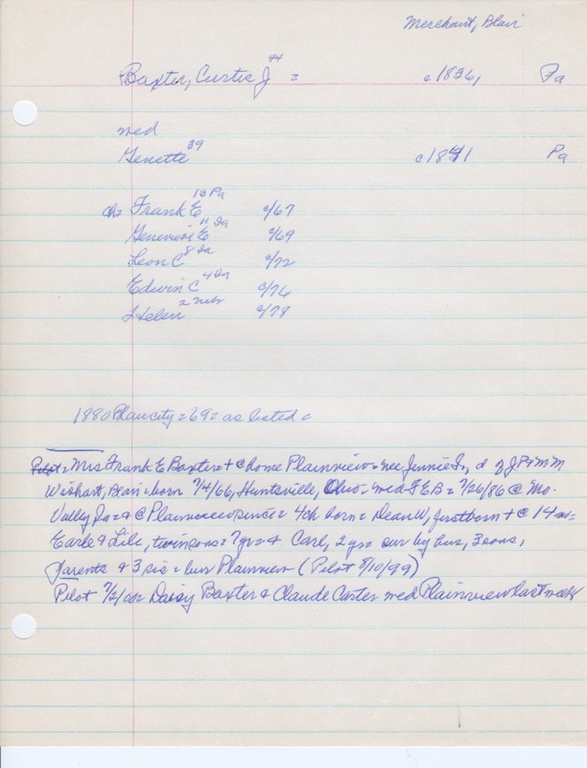 Merchant, Blair
Baxter, Curtis J 44 = c1836, Pa
med
Genette 39 c1841 Pa
ch Frank E 13 Pa c/67
Genevieve E 11 Ia c/69
Leon C 8 Ia c/72
Edwin C 4 Ia c/76
Helen 2 Nebr c/78
1880 Plaucity = 69 = as listed =
Pilot = Mrs Frank E Baxter = + @ home Plainview = nee Jennie I, d of J P & M M
Wishart, Blair = born 7/4/66, Huntsville, Ohio = med F E B = 7/26/86 @ Mo.
Valley Ia = & @ Plainview since = 4 ch born = Dean W, firstborn + @ 14 mo =
Earle & Lile, twin sons = 7 yrs = & Carl, 2 yrs = sur by hus, 3 sons,
parents & 3 sis = bur Plainview (Pilot 8/10/99)
Pilot Daisy Baxter & Claude Carter med Plainview last week